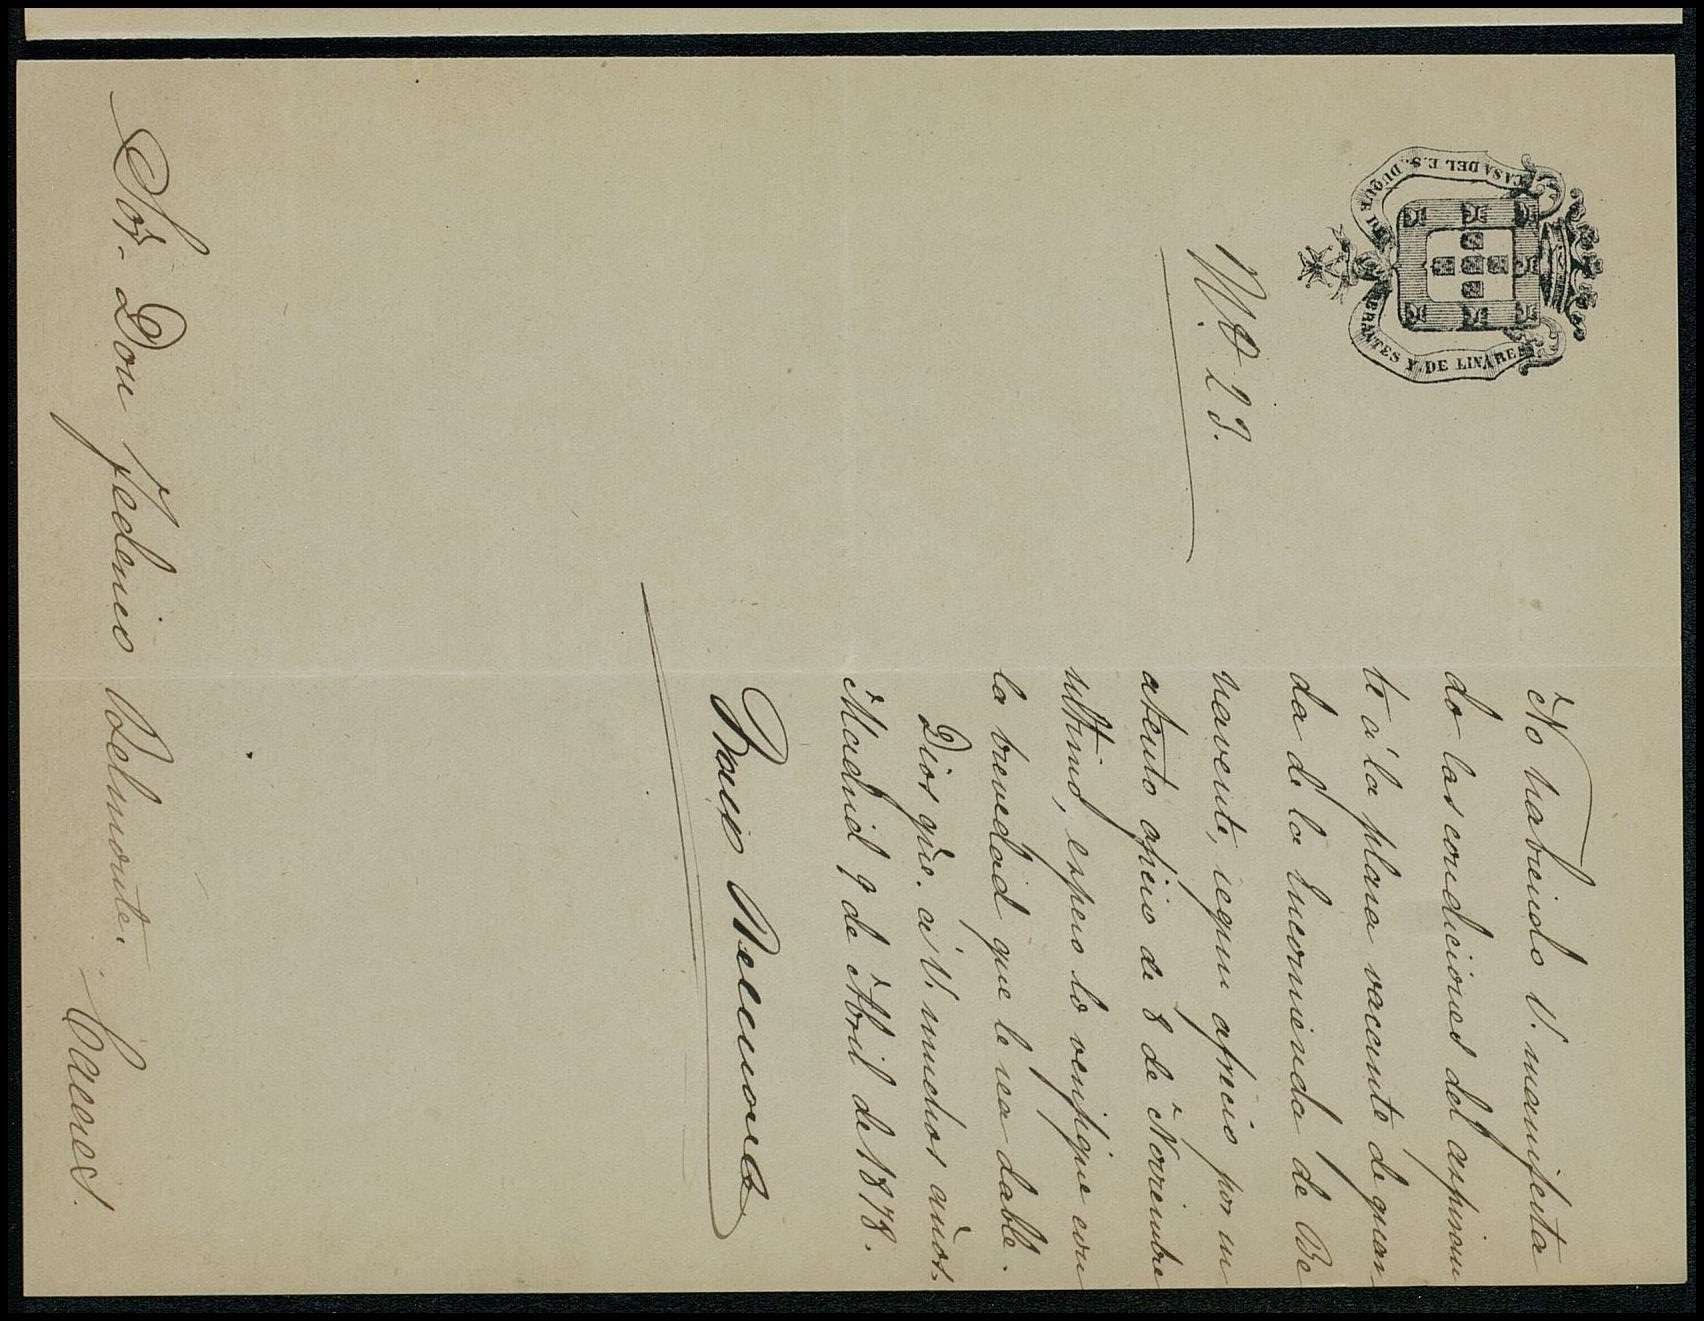 CASA DEL E.S. DUQUE DE ABRANTES Y DE LINARES
Nº 23.
No habiendo V. manifesta
do las condiciones del aspiran
te á la plaza vacante de guar
da de la Encomienda de Be
navente, segun afrecio por su
atento oficio de 8 de Noviembre
ultimo, espero lo verifique con
la brevedad que le sea dable.
Dios gũe. á V. muchos años.
Madrid 9 de Abril de 1878.
Sor. Don Federico Belmonte. Caceres.